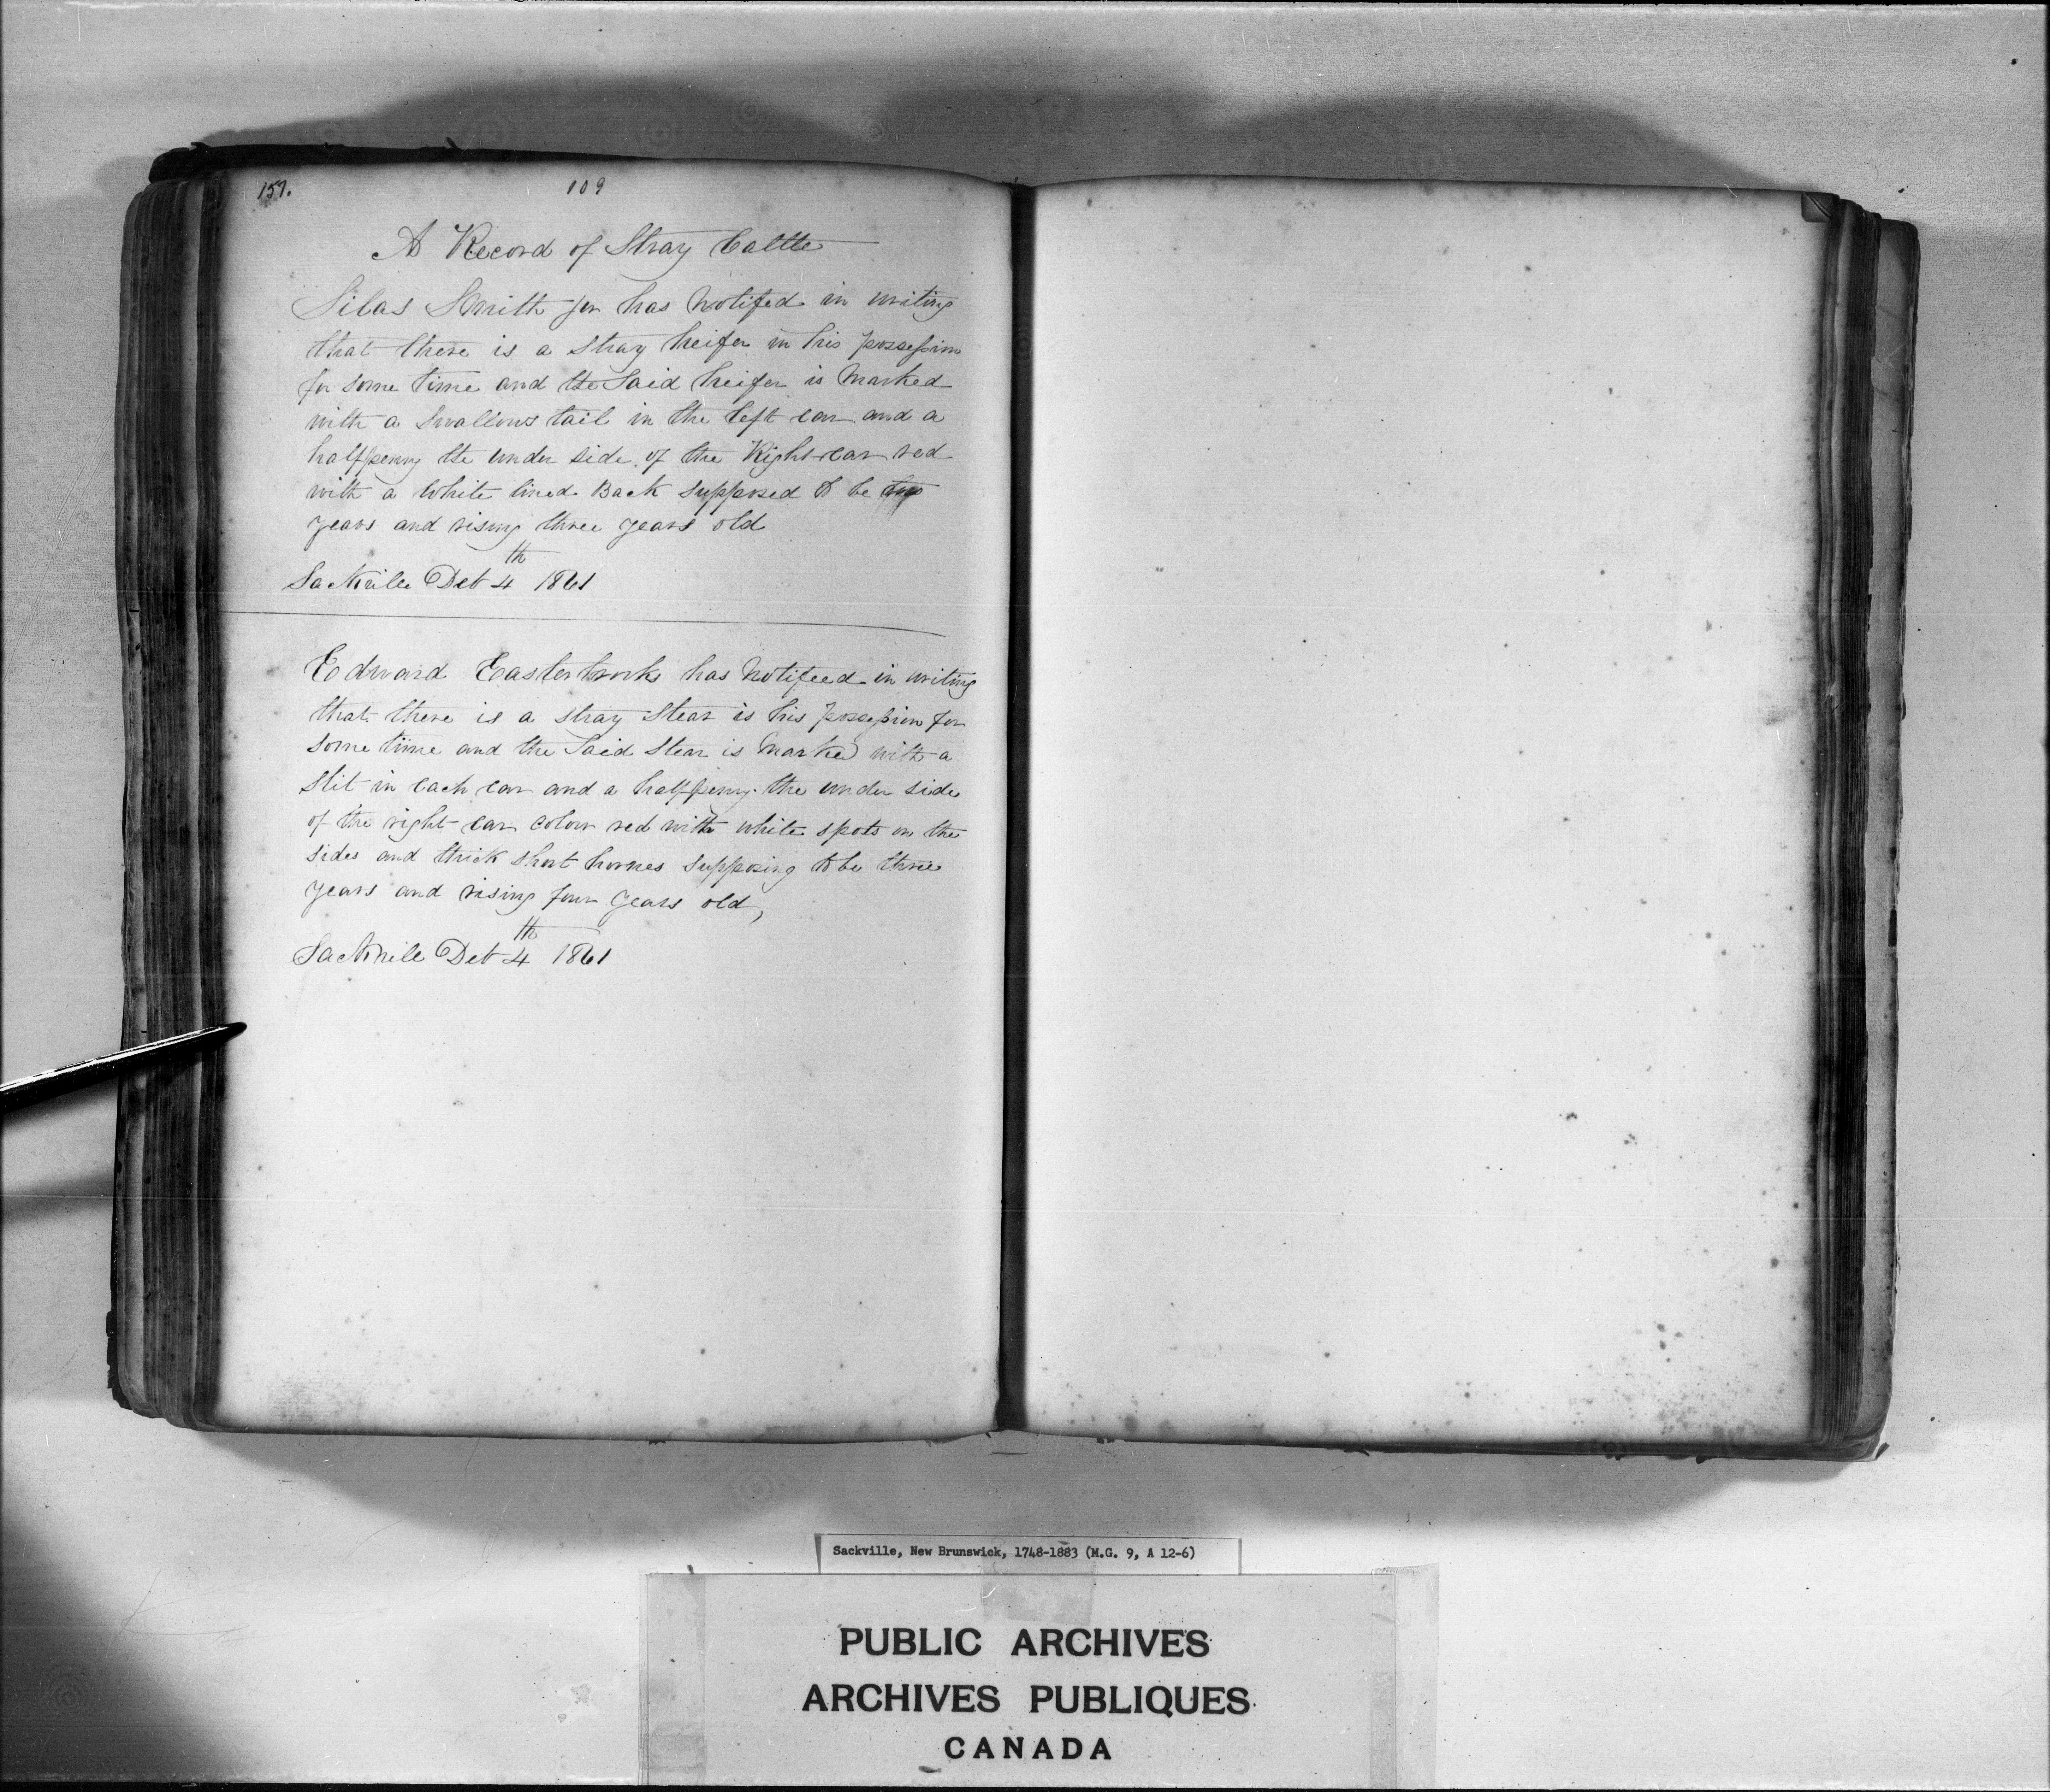 157.
109
A Record of Stray Cattle
Silas Smith Jnr has Notifed in writing
that there is a stray heifer in his possession
for some time and the Said heifer is Marked
with a Swallows tail in the left ear and a
halfpenny the under side of the Right ear red
with a White lined Back supposed to be two
years and rising three years old
Sackville Dct 4th 1861
Edward Easterbrooks has Notifeed in writing
that there is a stray Stear is his possession for
some time and the Said Stear is Marked with a
Slit in each ear and a halfpenny the under side
of the right ear colour red with white spots on the
sides and thick short hornes supposing to be three
years and rising four years old,
Sackville Dct 4th 1861
Sackville, New Brunswick, 1748-1883 (M.G. 9, A 12-6)
PUBLIC ARCHIVES
ARCHIVES PUBLIQUES
CANADA